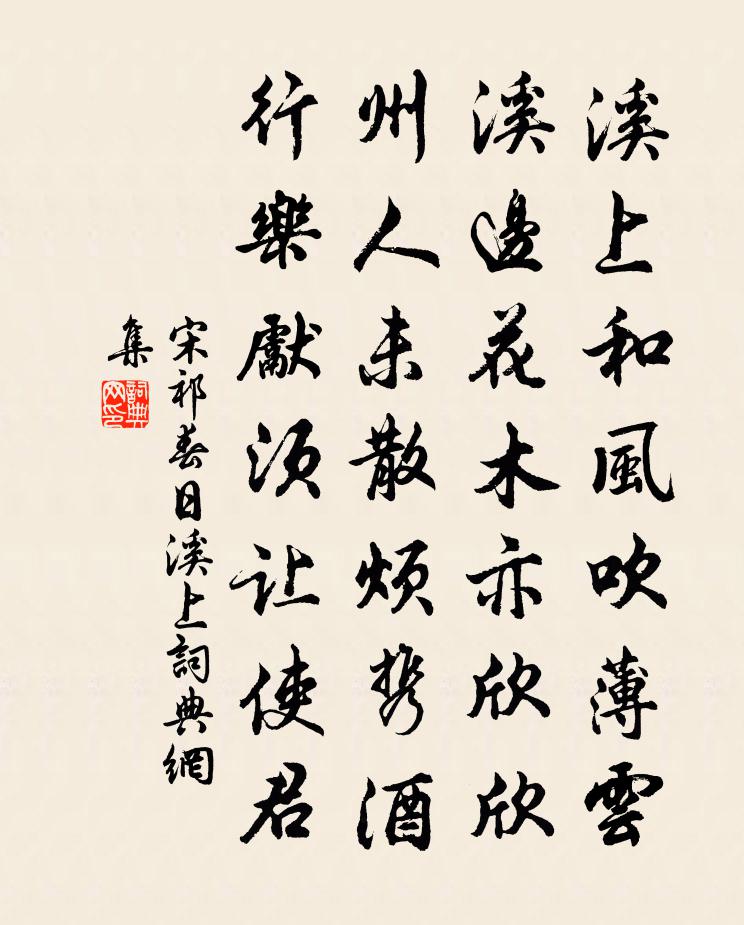 溪上和風吹薄雲
溪邊花木亦欣欣
州人未散煩携酒
行樂獻須让使君
宋祁春日溪上詞典網
集
詞典
网印